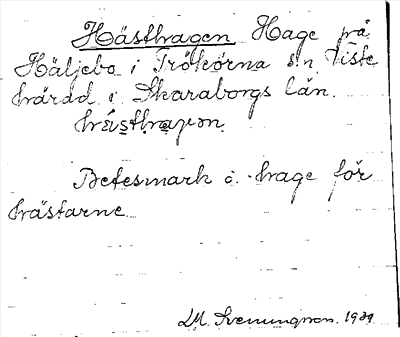 Hästhagen Hage på
Häljebo i Trökörna sn Viste
härad i Skaraborgs län.
hä́isthaɡon
Betesmark i hage för
hästarne
LM. Svenungson. 1931